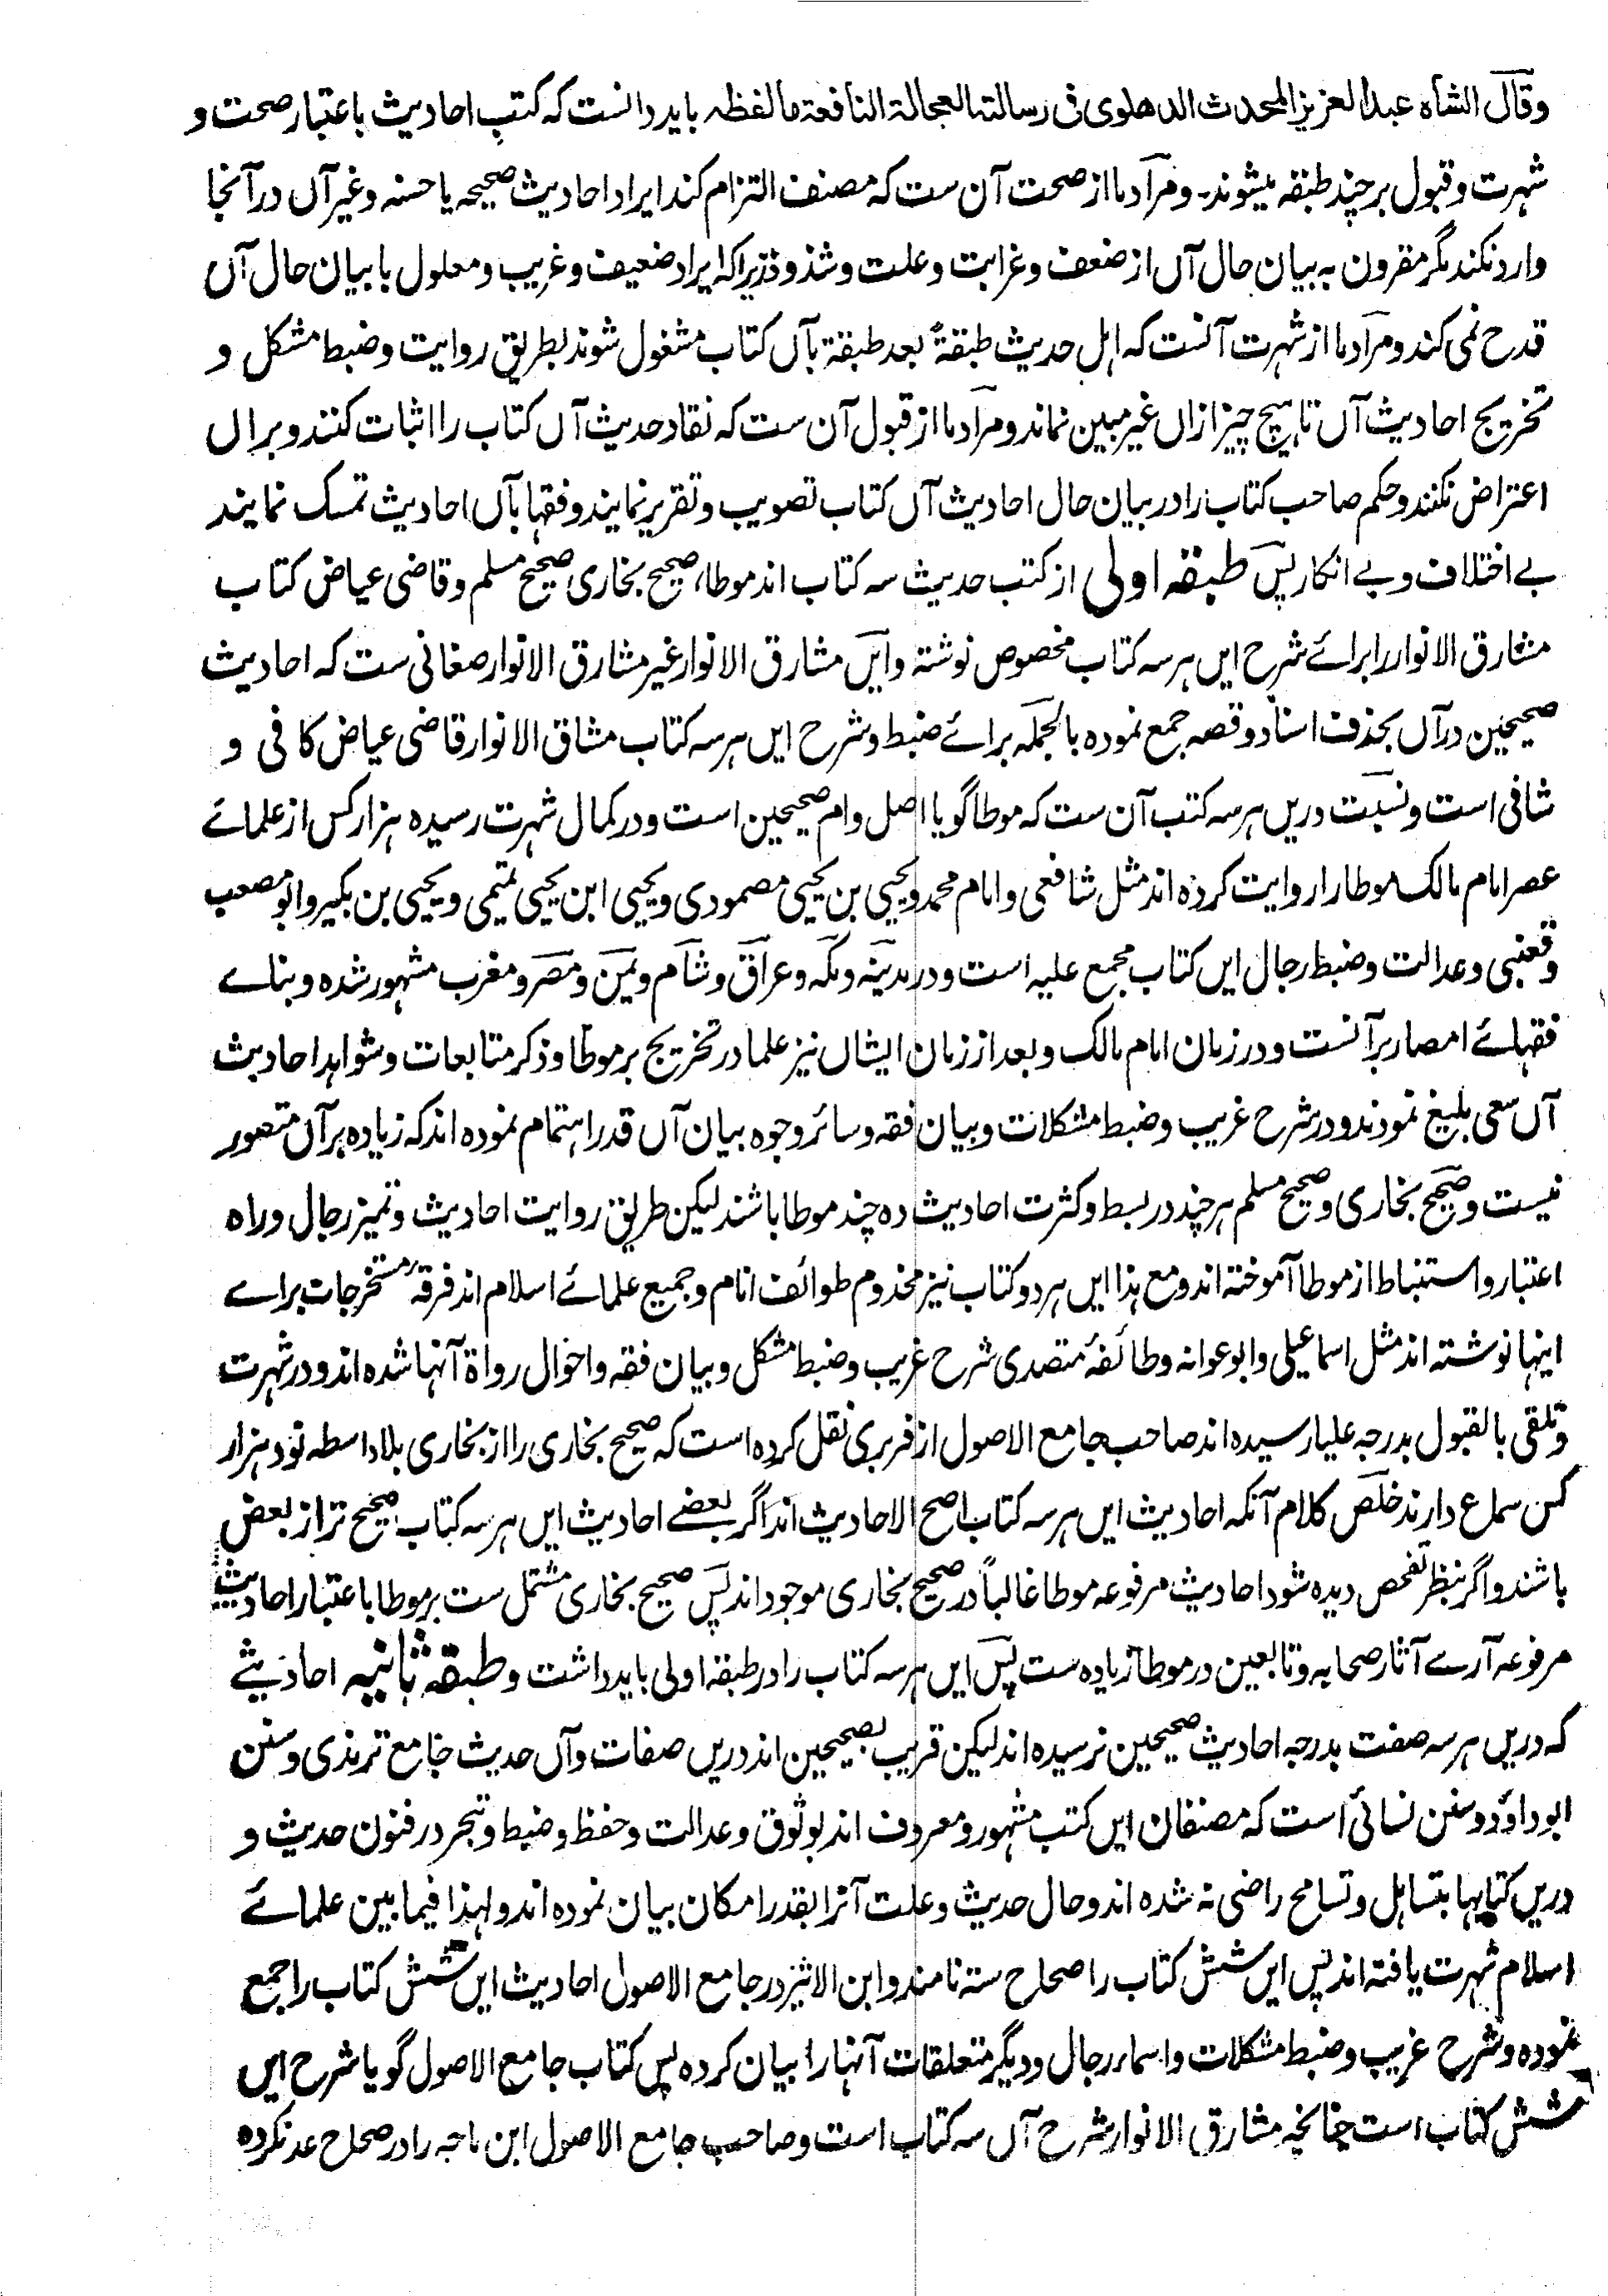 وقال الشاه عبد العزيز المحدث الدهلوی فی رسالتہ العجالۃ النافعۃ ما لفظہ باید دانست کہ کتب احادیث باعتبار صحت و
شہرت و قبول بر چند طبقہ میشوند۔ و مراد ما از صحت آن ست کہ مصنف التزام کند ایراد احادیث صحیحہ یا حسنہ و غیر آں در آنجا
وارد نکند مگر مقرون بہ بیان حال آں از ضعف و غرابت و علت و شذوذ زیرا کہ ایراد ضعیف و غریب و معلول با بیان حال آں
قدح نمی کند و مراد ما از شہرت آنست کہ اہل حدیث طبقۃً بعد طبقۃ بآں کتاب مشغول شوند بطریق روایت و ضبط مشکل و
تخریج احادیث آں تا ہیچ چیز ازاں غیر مبین نماند و مراد ما از قبول آن ست کہ نقاد حدیث آں کتاب را اثبات کنند و براں
اعتراض نکنند و حکم صاحب کتاب را در بیان حال احادیث آں کتاب تصویب و تقریر نمایند و فقہا بآں احادیث تمسک نمایند
بے اختلاف و بے انکار پس طبقہ اولی از کتب حدیث سہ کتاب اند موطا، صحیح بخاری صحیح مسلم و قاضی عیاض کتاب
مشارق الانوار را برائے شرح ایں ہر سہ کتاب مخصوص نوشتہ و ایں مشارق الانوار غیر مشارق الانوار صغانی ست کہ احادیث
صحیحین در آں بحذف اسناد و قصہ جمع نمودہ بالجملہ برائے ضبط و شرح ایں ہر سہ کتاب مشاق الانوار قاضی عیاض کافی و
شافی است و نسبت دریں ہر سہ کتب آن ست کہ موطا گویا اصل و ام صحیحین است و در کمال شہرت رسیدہ ہزار کس از علمائے
عصر امام مالک موطا را روایت کردہ اند مثل شافعی و امام محمد و یحیی بن یحیی مصمودی و یحیی ابن یحیی تمیمی و یحیی بن بکیر و ابو مصعب
و قعنبی و عدالت و ضبط رجال ایں کتاب مجمع علیہ است و در مدینہ و مکہ و عراق و شام و یمن و مصر و مغرب مشہور شدہ و بنائے
فقہائے امصار بر آنست و در زمان امام مالک و بعد از زمان ایشاں نیز علما در تخریج بر موطا و ذکر متابعات و شواہد احادیث
آں سعی بلیغ نمودند و در شرح غریب و ضبط مشکلات و بیان فقہ و سائر وجوہ بیان آں قدر اہتمام نمودہ اند کہ زیادہ بر آں متصور
نیست و صحیح بخاری و صحیح مسلم ہر چند در بسط و کثرت احادیث دہ چند موطا باشند لیکن طریق روایت احادیث و تمیز رجال و راہ
اعتبار و استنباط از موطا آموختہ اند و مع ہذا ایں ہر دو کتاب نیز مخدوم طوائف انام و جمیع علمائے اسلام اند فرقہ مستخرجات براے
اینہا نوشتہ اند مثل اسماعیلی و ابو عوانہ و طائفۂ متصدی شرح غریب و ضبط مشکل و بیان فقہ و احوال رواۃ آنہا شدہ اند و در شہرت
و تلقی بالقبول بدرجہ علیا رسیدہ اند صاحب جامع الاصول از فربری نقل کردہ است کہ صحیح بخاری را از بخاری بلا واسطہ نود ہزار
کس سماع دارند خلص کلام آنکہ احادیث ایں ہر سہ کتاب اصح الاحادیث اند اگر بعضے احادیث ایں ہر سہ کتاب صحیح تر از بعض
باشند و اگر بنظر تفحص دیدہ شود احادیث مرفوعہ موطا غالباً در صحیح بخاری موجود اند پس صحیح بخاری مشتمل ست بر موطا باعتبار احادیث
مرفوعہ آرے آثار صحابہ و تابعین در موطا زیادہ ست پس ایں ہر سہ کتاب را در طبقہ اولی باید داشت و طبقہ ثانیہ احادیثے
کہ دریں ہر سہ صفت بدرجہ احادیث صحیحین نرسیدہ اند لیکن قریب بصحیحین اند دریں صفات و آں حدیث جامع ترمذی و سنن
ابو داؤد و سنن نسائی است کہ مصنفان ایں کتب مشہور و معروف اند بوثوق و عدالت و حفظ و ضبط و تبحر در فنون حدیث و
دریں کتابہا بتساہل و تسامح راضی نہ شدہ اند و حال حدیث و علت آنرا بقدر امکان بیان نمودہ اند و لہذا فیما بین علمائے
اسلام شہرت یافتہ اند پس ایں شش کتاب را صحاح ستہ نامند و ابن الاثیر در جامع الاصول احادیث ایں شش کتاب را جمع
نمودہ و شرح غریب و ضبط مشکلات و اسماء رجال و دیگر متعلقات آنہا را بیان کردہ پس کتاب جامع الاصول گویا شرح ایں
شش کتاب است چنانچہ مشارق الانوار شرح آں سہ کتاب است و صاحب جامع الاصول ابن ماجہ را در صحاح عد نکردہ